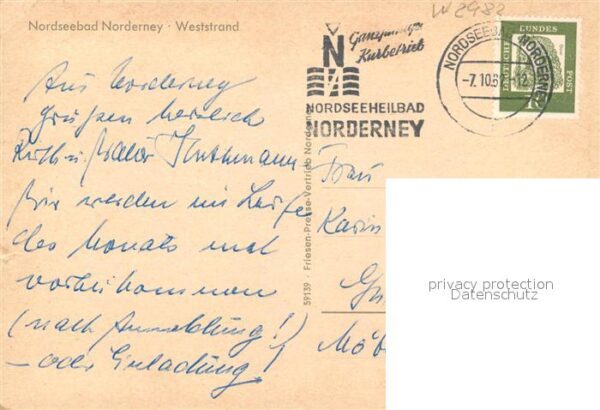 W 2982
Nordseebad Norderney · Weststrand
Ganzjähriger
Kurbetrieb
N
NORDSEEHEILBAD
NORDERNEY
NORDSEEBAD NORDERNEY
-7.10.62-12
DEUTSCHE BUNDESPOST
Aus Norderney
grüßen herzlich
Ruth u. Walter
Wir werden im Laufe
des Monats mal
vorbeikommen
(nach Anmeldung!)
– oder Einladung!
59139 · Friesen-Presse-Vertrieb Norden
Frau
Karin
Mö
privacy protection
Datenschutz